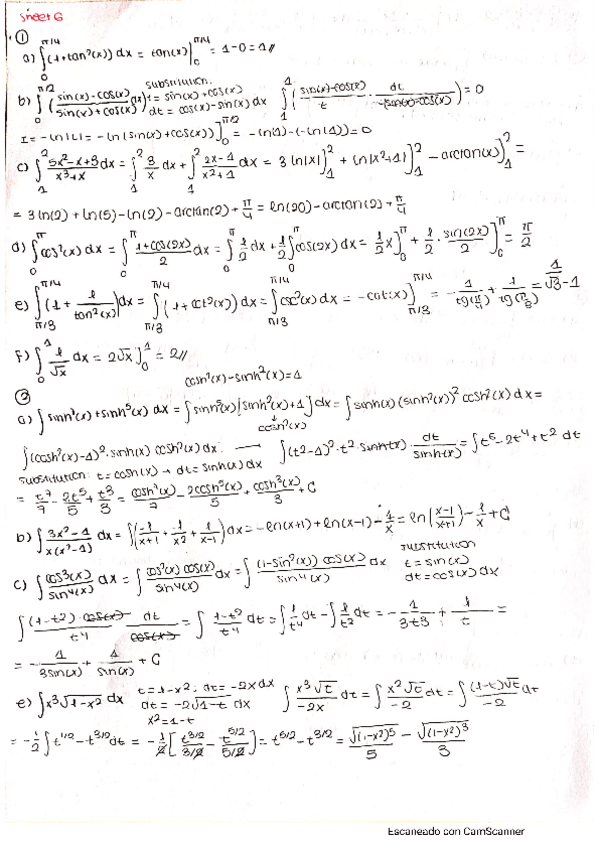 Sheet 6
①
a) ∫₀^{π/4} (1+tan²(x)) dx = tan(x)]₀^{π/4} = 1-0 = 1//
substitution:
b) ∫₀^{π/2} (sin(x)-cos(x) / sin(x)+cos(x)) dx t = sin(x)+cos(x) dt = cos(x)-sin(x) dx ∫₁¹ (sin(x)-cos(x) / t · dt / -(sin(x)-cos(x))) = 0
I = -ln|t| = -ln(sin(x)+cos(x))]₀^{π/2} = -ln(1)-(-ln(1)) = 0
c) ∫₁² 5x²-x+3 / x³+x dx = ∫₁² 3/x dx + ∫₁² 2x-1 / x²+1 dx = 3 ln|x|]₁² + ln|x²+1|]₁² - arctan(x)]₁² =
= 3 ln(2) + ln(5) - ln(2) - arctan(2) + π/4 = ln(20) - arctan(2) + π/4
d) ∫₀^π cos²(x) dx = ∫₀^π 1+cos(2x) / 2 dx = ∫₀^π 1/2 dx + 1/2 ∫₀^π cos(2x) dx = 1/2 x]₀^π + 1/2 · sin(2x)/2]₀^π = π/2
e) ∫_{π/3}^{π/4} (1 + 1/tan²(x)) dx = ∫_{π/3}^{π/4} (1+cot²(x)) dx = ∫ csc²(x) dx = -cot(x)]_{π/3}^{π/4} = -1/tg(π/4) + 1/tg(π/3) = 1/√3 - 1
f) ∫₀¹ 1/√x dx = 2√x]₀¹ = 2//
cosh²(x)-sinh²(x)=1
②
a) ∫ sinh⁷(x) + sinh⁵(x) dx = ∫ sinh⁵(x) [sinh²(x)+1] dx = ∫ sinh(x) (sinh²(x))² cosh²(x) dx =
cosh²(x)
∫ (cosh²(x)-1)² · sinh(x) cosh²(x) dx → ∫ (t²-1)² · t² · sinh(x) · dt / sinh(x) = ∫ t⁶ - 2t⁴ + t² dt
substitution: t = cosh(x) → dt = sinh(x) dx
= t⁷/7 - 2t⁵/5 + t³/3 = cosh⁷(x)/7 - 2cosh⁵(x)/5 + cosh³(x)/3 + C
b) ∫ 3x²-1 / x(x²-1) dx = ∫ (-1/x+1 + 1/x² + 1/x-1) dx = -ln(x+1) + ln(x-1) - 1/x = ln(x-1/x+1) - 1/x + C
substitution
c) ∫ cos³(x) / sin⁴(x) dx = ∫ cos²(x) cos(x) / sin⁴(x) dx = ∫ (1-sin²(x)) cos(x) / sin⁴(x) dx t = sin(x)
dt = cos(x) dx
∫ (1-t²) · cos(x) / t⁴ · dt / cos(x) = ∫ 1-t² / t⁴ dt = ∫ 1/t⁴ dt - ∫ 1/t² dt = -1/3t³ + 1/t =
= -1/3sin(x) + 1/sin(x) + C
e) ∫ x³√1-x² dx t = 1-x²; dt = -2x dx ∫ x³√t / -2x dt = ∫ x²√t / -2 dt = ∫ (1-t)√t / -2 dt
dt = -2√1-t dx
x² = 1-t
= -1/2 ∫ t^{1/2} - t^{3/2} dt = -1/2 [t^{3/2} / 3/2 - t^{5/2} / 5/2] = t^{5/2} - t^{3/2} = √(1-x²)⁵ / 5 - √(1-x²)³ / 3
Escaneado con CamScanner